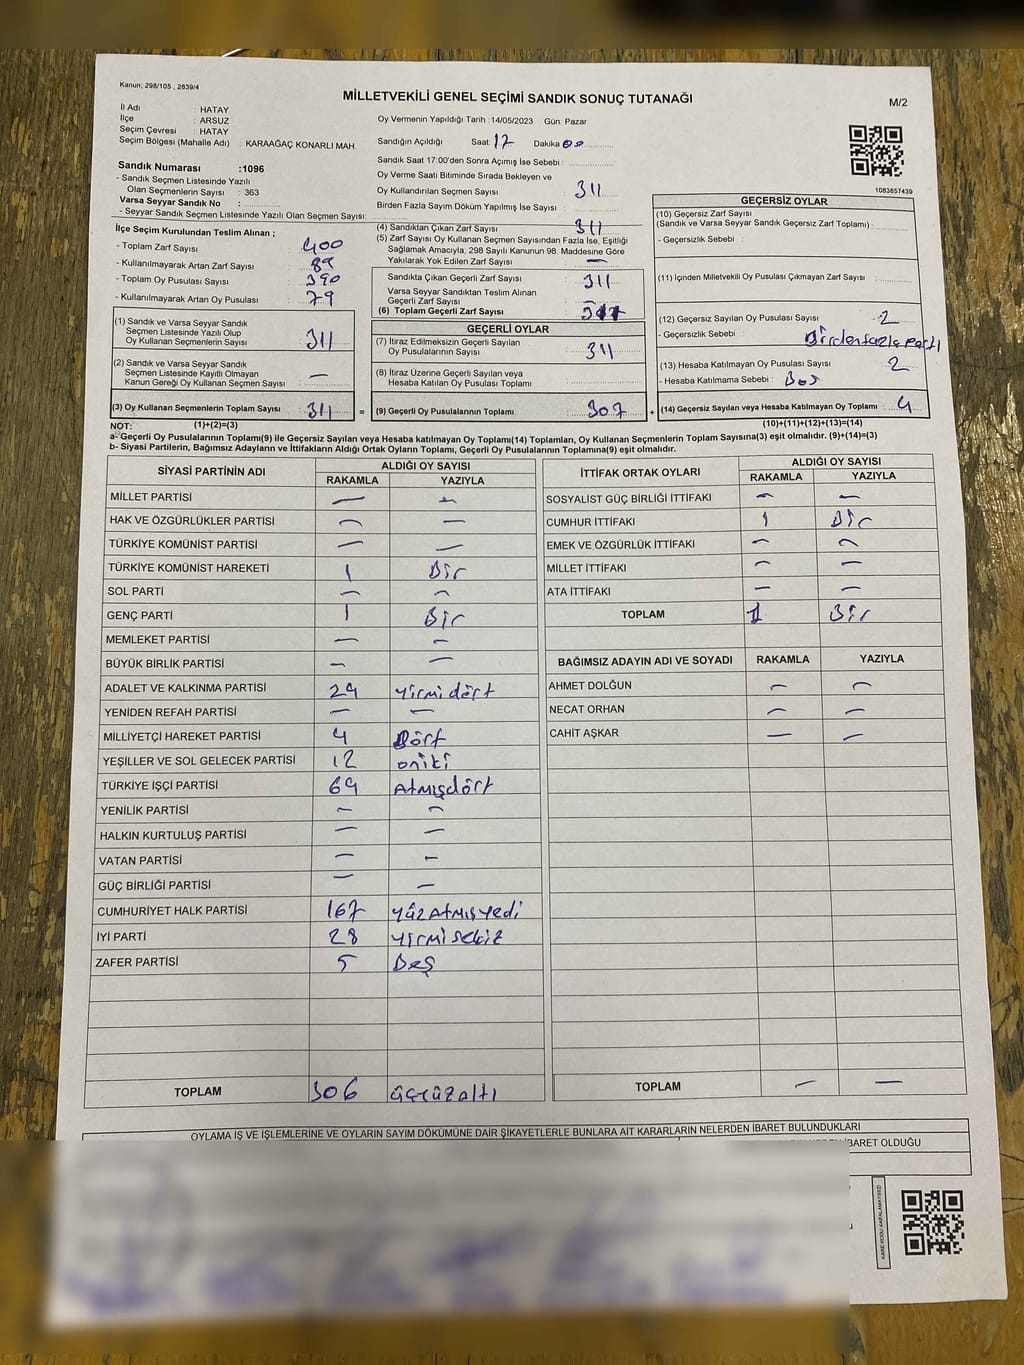 Kanun; 298/105 , 2839/4
MİLLETVEKİLİ GENEL SEÇİMİ SANDIK SONUÇ TUTANAĞI
M/2
İl Adı : HATAY
İlçe : ARSUZ
Seçim Çevresi : HATAY
Seçim Bölgesi (Mahalle Adı) : KARAAĞAÇ KONARLI MAH.
Oy Vermenin Yapıldığı Tarih :14/05/2023 Gün: Pazar
Sandığın Açıldığı Saat: 17 Dakika 00
Sandık Saat 17:00'den Sonra Açımış İse Sebebi :
Sandık Numarası :1096
- Sandık Seçmen Listesinde Yazılı
Olan Seçmenlerin Sayısı : 363
Varsa Seyyar Sandık No :
- Seyyar Sandık Seçmen Listesinde Yazılı Olan Seçmen Sayısı:
Oy Verme Saati Bitiminde Sırada Bekleyen ve
Oy Kullandırılan Seçmen Sayısı : 311
Birden Fazla Sayım Döküm Yapılmış İse Sayısı :
1083857439
İlçe Seçim Kurulundan Teslim Alınan ;
- Toplam Zarf Sayısı : 400
- Kullanılmayarak Artan Zarf Sayısı : 89
- Toplam Oy Pusulası Sayısı : 390
- Kullanılmayarak Artan Oy Pusulası : 79
(1) Sandık ve Varsa Seyyar Sandık
Seçmen Listesinde Yazılı Olup
Oy Kullanan Seçmenlerin Sayısı : 311
(2) Sandık ve Varsa Seyyar Sandık
Seçmen Listesinde Kayıtlı Olmayan
Kanun Gereği Oy Kullanan Seçmen Sayısı : —
(3) Oy Kullanan Seçmenlerin Toplam Sayısı : 311
(1)+(2)=(3)
(4) Sandıktan Çıkan Zarf Sayısı : 311
(5) Zarf Sayısı Oy Kullanan Seçmen Sayısından Fazla İse, Eşitliği
Sağlamak Amacıyla, 298 Sayılı Kanunun 98. Maddesine Göre
Yakılarak Yok Edilen Zarf Sayısı : —
Sandıkta Çıkan Geçerli Zarf Sayısı : 311
Varsa Seyyar Sandıktan Teslim Alınan
Geçerli Zarf Sayısı :
(6) Toplam Geçerli Zarf Sayısı :
GEÇERLİ OYLAR
(7) İtiraz Edilmeksizin Geçerli Sayılan
Oy Pusulalarının Sayısı : 311
(8) İtiraz Üzerine Geçerli Sayılan veya
Hesaba Katılan Oy Pusulası Toplamı :
= (9) Geçerli Oy Pusulalarının Toplamı : 307
GEÇERSİZ OYLAR
(10) Geçersiz Zarf Sayısı
(Sandık ve Varsa Seyyar Sandık Geçersiz Zarf Toplamı) :
- Geçersizlik Sebebi :
(11) İçinden Milletvekili Oy Pusulası Çıkmayan Zarf Sayısı :
(12) Geçersiz Sayılan Oy Pusulası Sayısı : 2
- Geçersizlik Sebebi : Birden fazla Parti
(13) Hesaba Katılmayan Oy Pusulası Sayısı : 2
- Hesaba Katılmama Sebebi : Boş
+ (14) Geçersiz Sayılan veya Hesaba Katılmayan Oy Toplamı : 4
(10)+(11)+(12)+(13)=(14)
NOT:
a- Geçerli Oy Pusulalarının Toplamı(9) ile Geçersiz Sayılan veya Hesaba katılmayan Oy Toplamı(14) Toplamları, Oy Kullanan Seçmenlerin Toplam Sayısına(3) eşit olmalıdır. (9)+(14)=(3)
b- Siyasi Partilerin, Bağımsız Adayların ve İttifakların Aldığı Ortak Oyların Toplamı, Geçerli Oy Pusulalarının Toplamına(9) eşit olmalıdır.
SİYASİ PARTİNİN ADI ALDIĞI OY SAYISI
RAKAMLA YAZIYLA
MİLLET PARTİSİ — —
HAK VE ÖZGÜRLÜKLER PARTİSİ — —
TÜRKİYE KOMÜNİST PARTİSİ — —
TÜRKİYE KOMÜNİST HAREKETİ 1 Bir
SOL PARTİ — —
GENÇ PARTİ 1 Bir
MEMLEKET PARTİSİ — —
BÜYÜK BİRLİK PARTİSİ — —
ADALET VE KALKINMA PARTİSİ 24 Yirmi dört
YENİDEN REFAH PARTİSİ — —
MİLLİYETÇİ HAREKET PARTİSİ 4 Dört
YEŞİLLER VE SOL GELECEK PARTİSİ 12 oniki
TÜRKİYE İŞÇİ PARTİSİ 64 Atmışdört
YENİLİK PARTİSİ — —
HALKIN KURTULUŞ PARTİSİ — —
VATAN PARTİSİ — —
GÜÇ BİRLİĞİ PARTİSİ — —
CUMHURİYET HALK PARTİSİ 167 YüzAtmışyedi
İYİ PARTİ 28 Yirmisekiz
ZAFER PARTİSİ 5 Beş
TOPLAM 306 üçyüzaltı
İTTİFAK ORTAK OYLARI ALDIĞI OY SAYISI
RAKAMLA YAZIYLA
SOSYALİST GÜÇ BİRLİĞİ İTTİFAKI — —
CUMHUR İTTİFAKI 1 Bir
EMEK VE ÖZGÜRLÜK İTTİFAKI — —
MİLLET İTTİFAKI — —
ATA İTTİFAKI — —
TOPLAM 1 Bir
BAĞIMSIZ ADAYIN ADI VE SOYADI RAKAMLA YAZIYLA
AHMET DOLĞUN — —
NECAT ORHAN — —
CAHİT AŞKAR — —
TOPLAM — —
OYLAMA İŞ VE İŞLEMLERİNE VE OYLARIN SAYIM DÖKÜMÜNE DAİR ŞİKAYETLERLE BUNLARA AİT KARARLARIN NELERDEN İBARET BULUNDUKLARI
İBARET OLDUĞU
KAREKODU KARALAMAYINIZ!